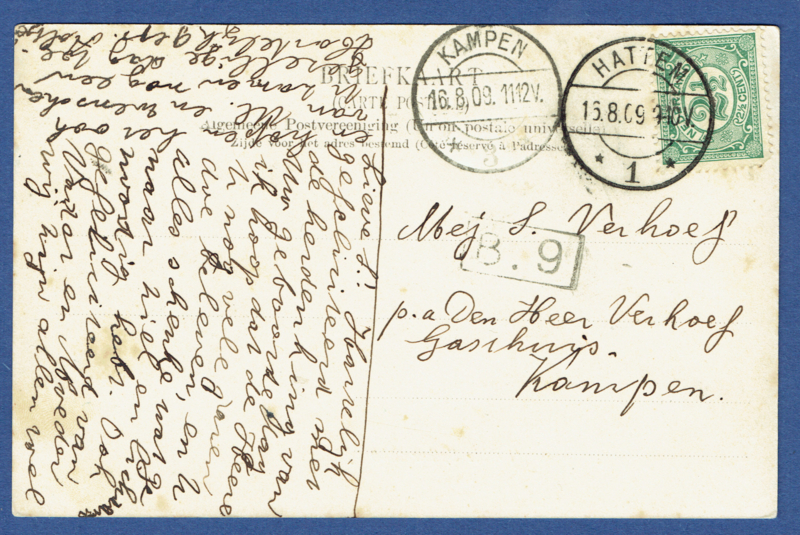 BRIEFKAART
(CARTE POSTALE)
Algemeene Postvereeniging (Union postale universelle)
Zijde voor het adres bestemd (Côté réservé à l'adresse)
KAMPEN
16.8.09. 1112V.
3
HATTEM
16.8.09 
1
2½
CENT
B.9
Mej S. Verhoef
p.a Den Heer Verhoef
Gasthuis.
Kampen.
Lieve S! Hartelijk
gefeliciteerd met
de herdenking van
Uw geboortedag
ik hoop dat de Heere
U nog vele jaren
beleven, en U
alles schenke, wat ge
maar ziel en
noodig hebt. Ook
gefeliciteerd van
Vader en Moeder
wij zijn allen wel